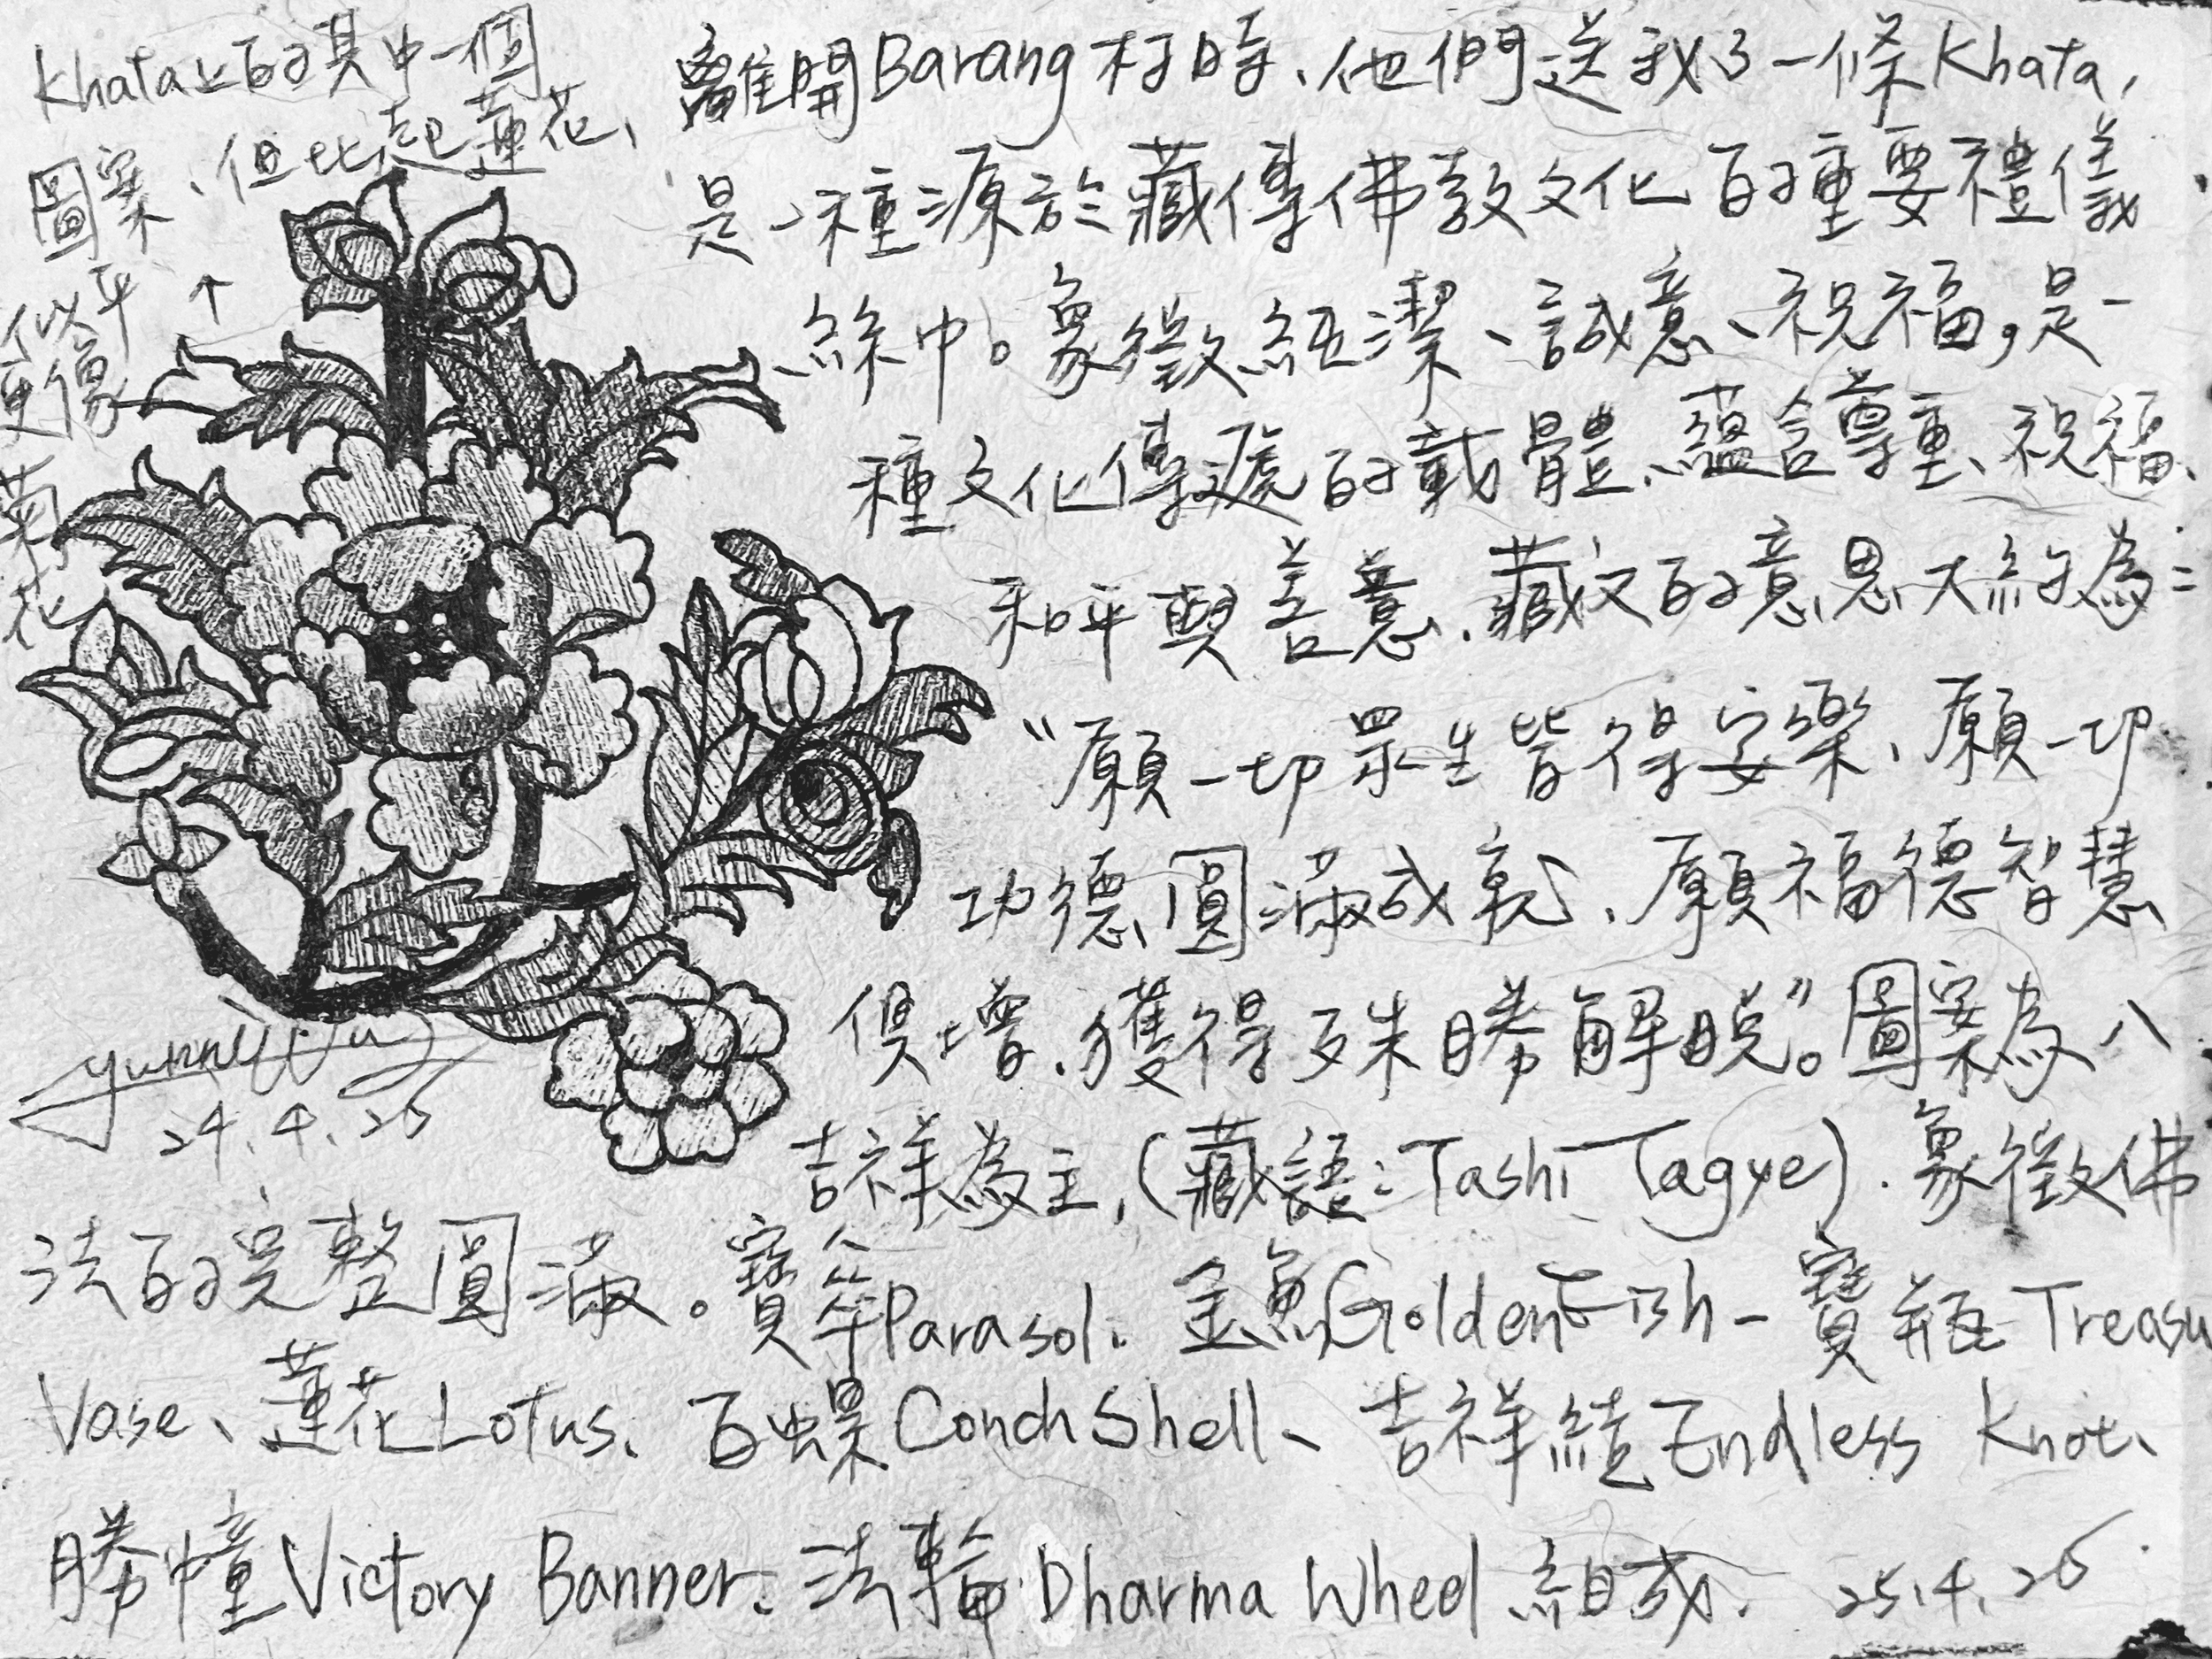 Khata上的其中一個
圖案、但比起蓮花、
似乎
更像
菊
花
離開Barang村時、他們送我了一條Khata,
是一種源於藏傳佛教文化的重要禮儀
絲巾。象徵純潔、誠意、祝福,是一
種文化傳遞的載體、蘊含尊重、祝福、
和平與善意、藏文的意思大約為:
"願一切眾生皆得安樂、願一切
功德圓滿成就、願福德智慧
俱增、獲得殊勝解脫"。圖案為八
吉祥為主,(藏語:Tashi Tagye)、象徵佛
法的完整圓滿。寶傘Parasol、金魚Golden Fish-寶瓶Treasu
Vase、蓮花Lotus、白螺Conch Shell、吉祥結Endless Knot、
勝幢Victory Banner、法輪Dharma Wheel組成. 25.4.26
24.4.26